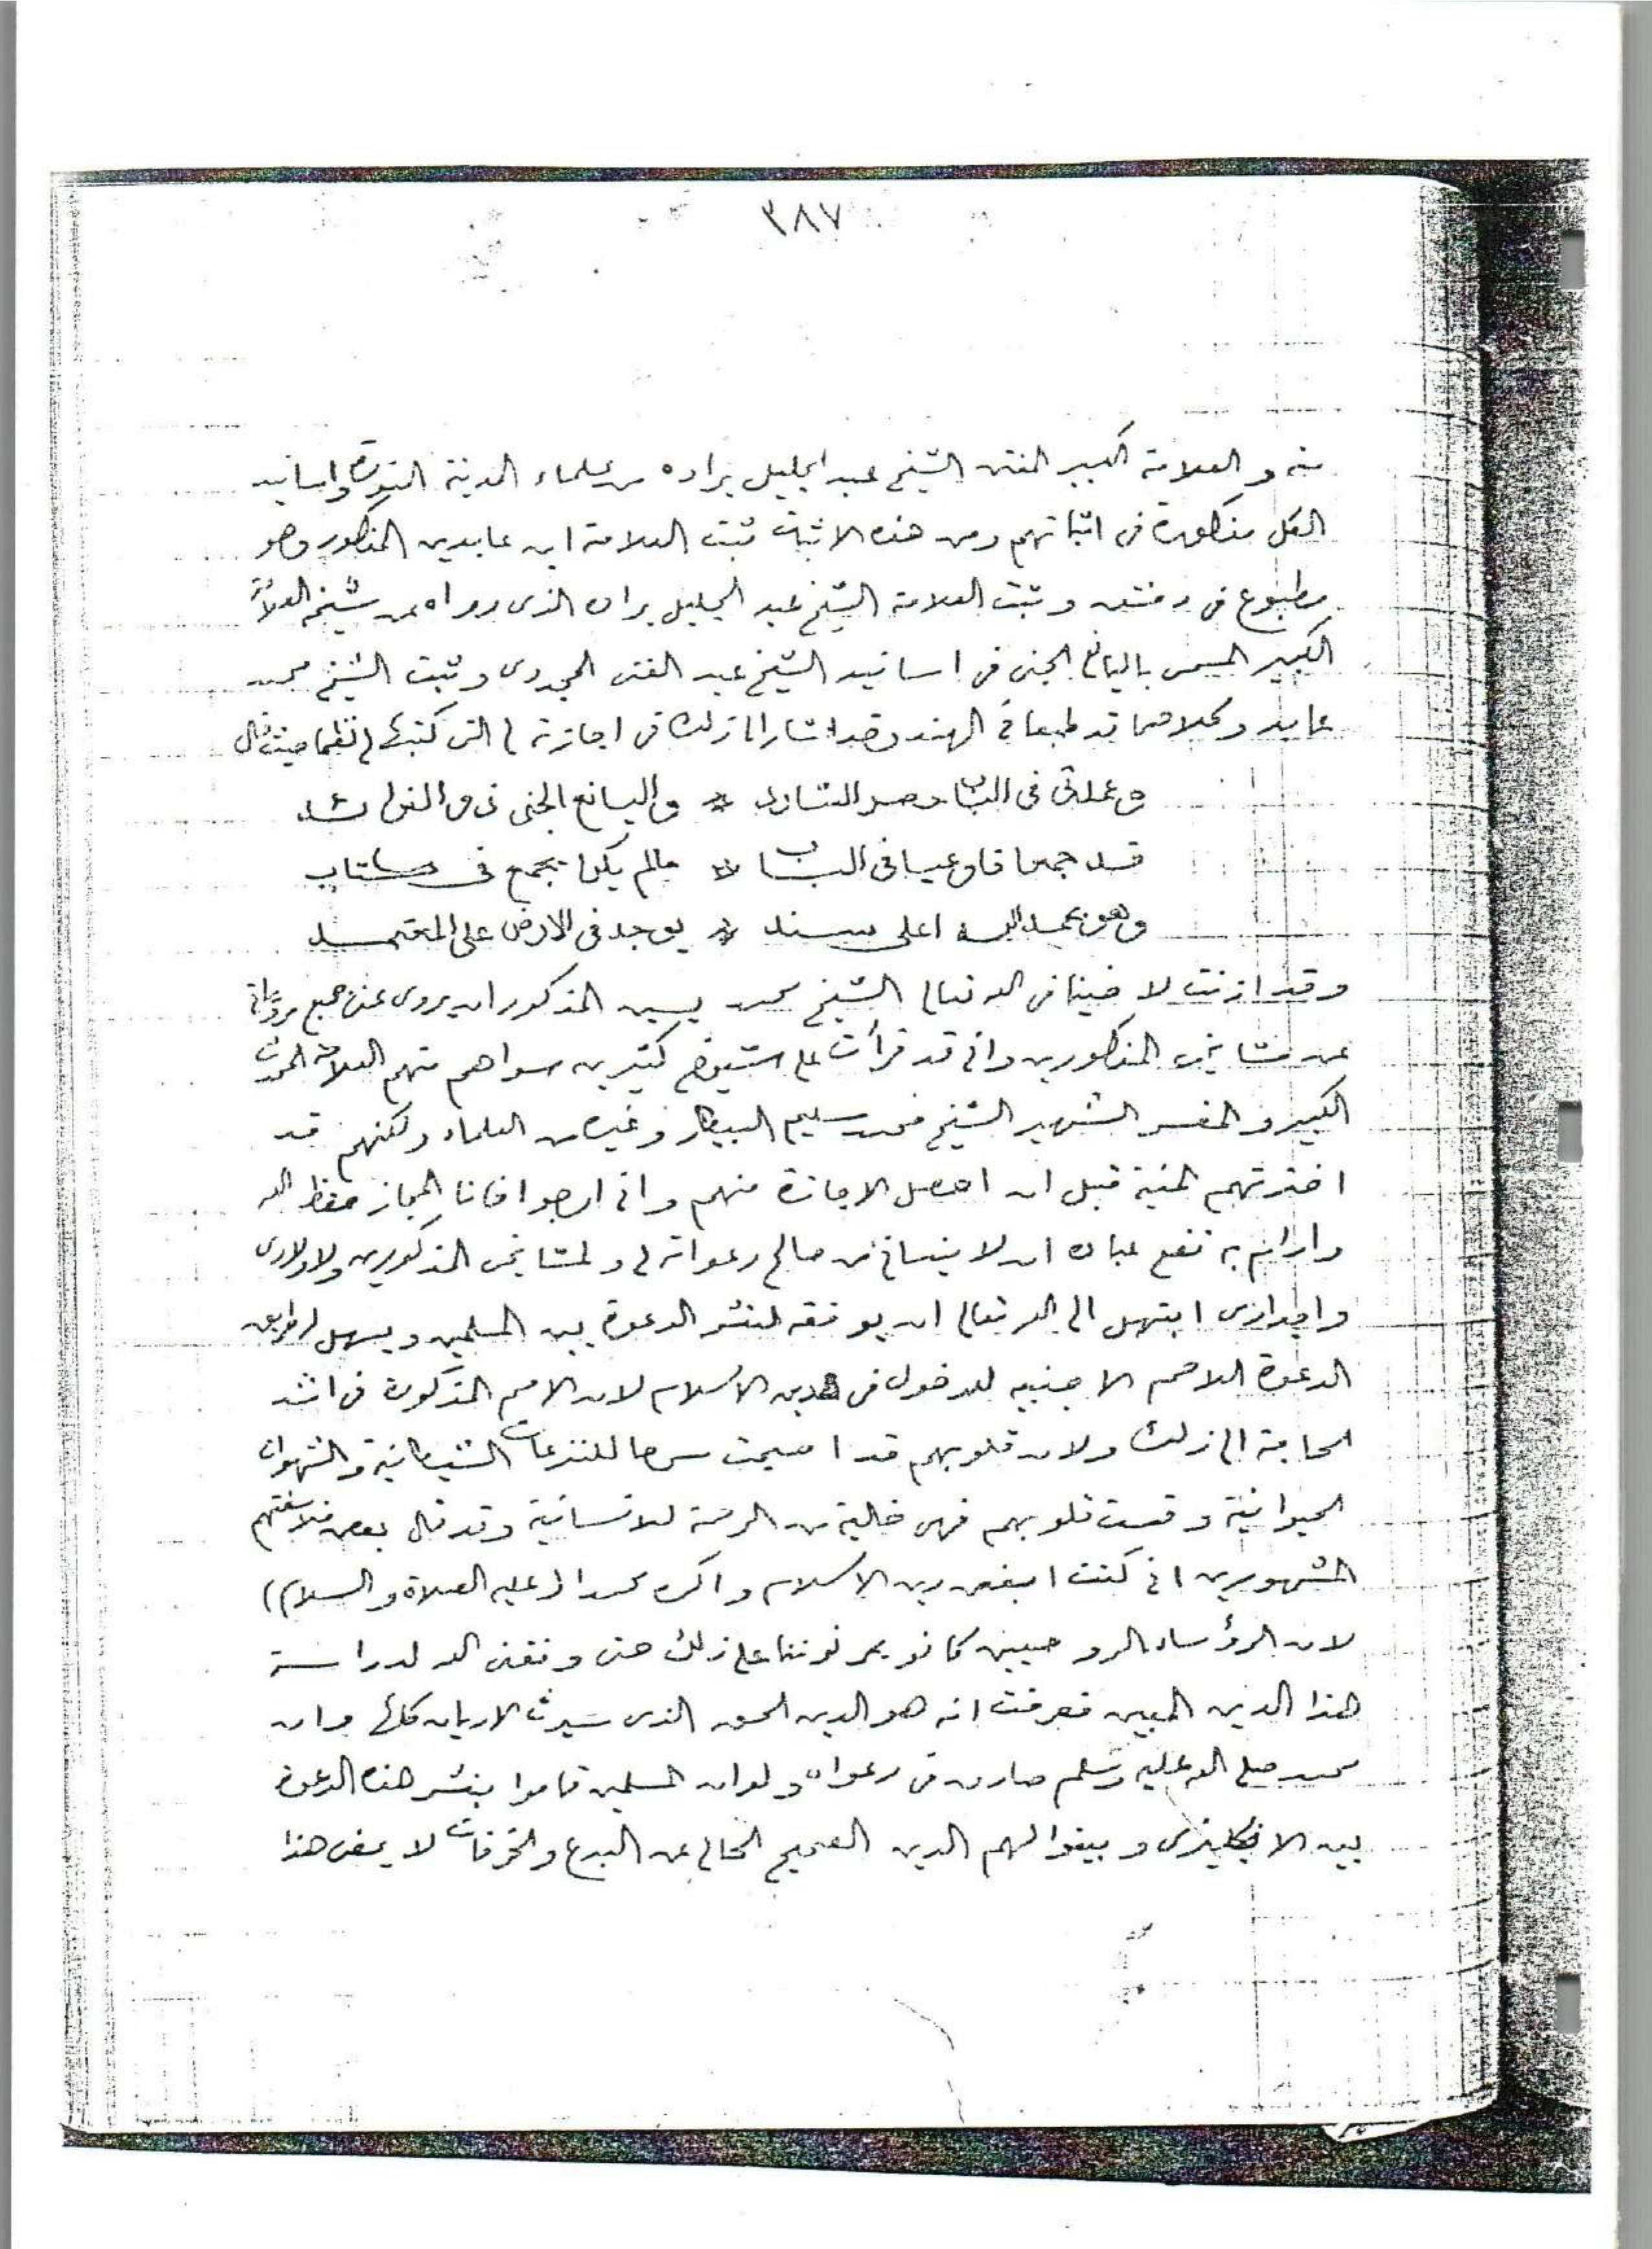 ٣٨٧
منه والعلامة الكبير المفتى الشيخ عبد الجليل براده من علماء المدينة المنورة واسانيد
الكل مذكورة فى اثباتهم ومن هذه الاثبات ثبت العلامة ابن عابدين المذكور وهو
مطبوع فى دمشق وثبت العلامة الشيخ عبد الجليل براده الذى رواه عن شيخه العلامة
الكبير المسمى باليانع الجنى فى اسانيد الشيخ عبد الغنى المجددى وثبت الشيخ محمد
عابد وكلاهما قد طبعا فى الهند وقد اشار الى ذلك فى اجازته لى التى كتبها لى نظما حيث قال
وعملتى فى الباب حصر الشارد * واليانع الجنى ذو الفوائد
قد جمعا فاوعيا فى الباب * مالم يكن يجمع فى كتاب
وهو بحمد الله اعلى سند * يوجد فى الارض على المعتمد
وقد اذنت لاخينا فى الله تعالى الشيخ محمد يسين المذكور ان يروى عنى جميع مروياتى
عن مشايخى المذكورين وانى قد قرأت على شيوخ كثيرين سواهم منهم العلامة المحدث
الكبير والمفسر الشهير الشيخ محمد سليم البيطار وغيره من العلماء ولكنهم قد
اخترتهم المنية قبل ان احصل الاجازة منهم وانى ارجو اخانا المجاز حفظه الله
وادام به نفع عباده ان لا ينسانى من صالح دعواته لى ولمشايخى المذكورين ولاولادى
واجدادى ابتهل الى الله تعالى ان يوفقه لنشر الدعوة بين المسلمين ويسهل طريق
الدعوة للامم الاجنبيه للدخول فى دين الاسلام لان الامم المذكورة فى اشد
الحاجة الى ذلك ولان قلوبهم قد اصبحت مسرحا للنزعات الشيطانية والشهوات
الحيوانية وقست قلوبهم فهى خالية من الرحمة للانسانية وقد قال بعض فلاسفتهم
المشهورين انى كنت ابغض دين الاسلام واكره محمدا (عليه الصلاة والسلام)
لان الرؤساء الروحيين كانو يمرنوننا على ذلك حتى وفقنى الله لدراسة
هذا الدين المبين فعرفت انه هو الدين الحق الذى سيرث الاديان كلها وان
محمد صلى الله عليه وسلم صادق فى دعواه ولوان المسلمين قاموا بنشر هذه الدعوة
بين الانكليزى وبينوا لهم الدين الصحيح الخالى عن البدع والخرفات لا يمضى هذا